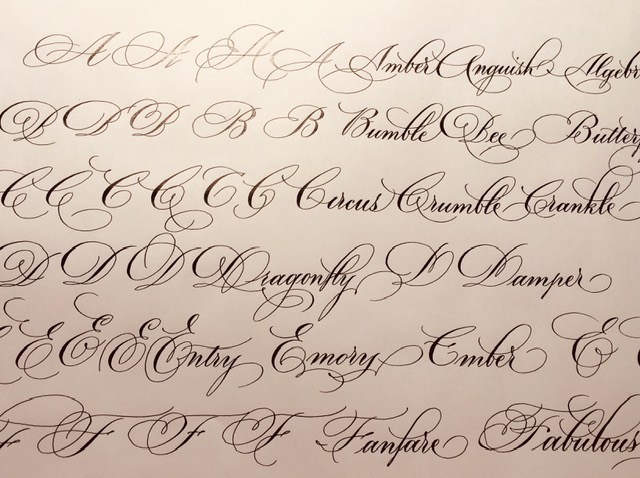 A A A A Amber Anguish Algebr
B B B B B Bumble Bee Butterf
C C C C C C Circus Crumble Crankle
D D D Dragonfly D Damper
E E E E Entry Emory Ember E
F F F F Fanfare Fabulous